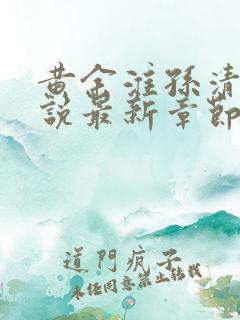 黄金淮孫清
説最新章節
道門瘋子
未经同意禁止转载